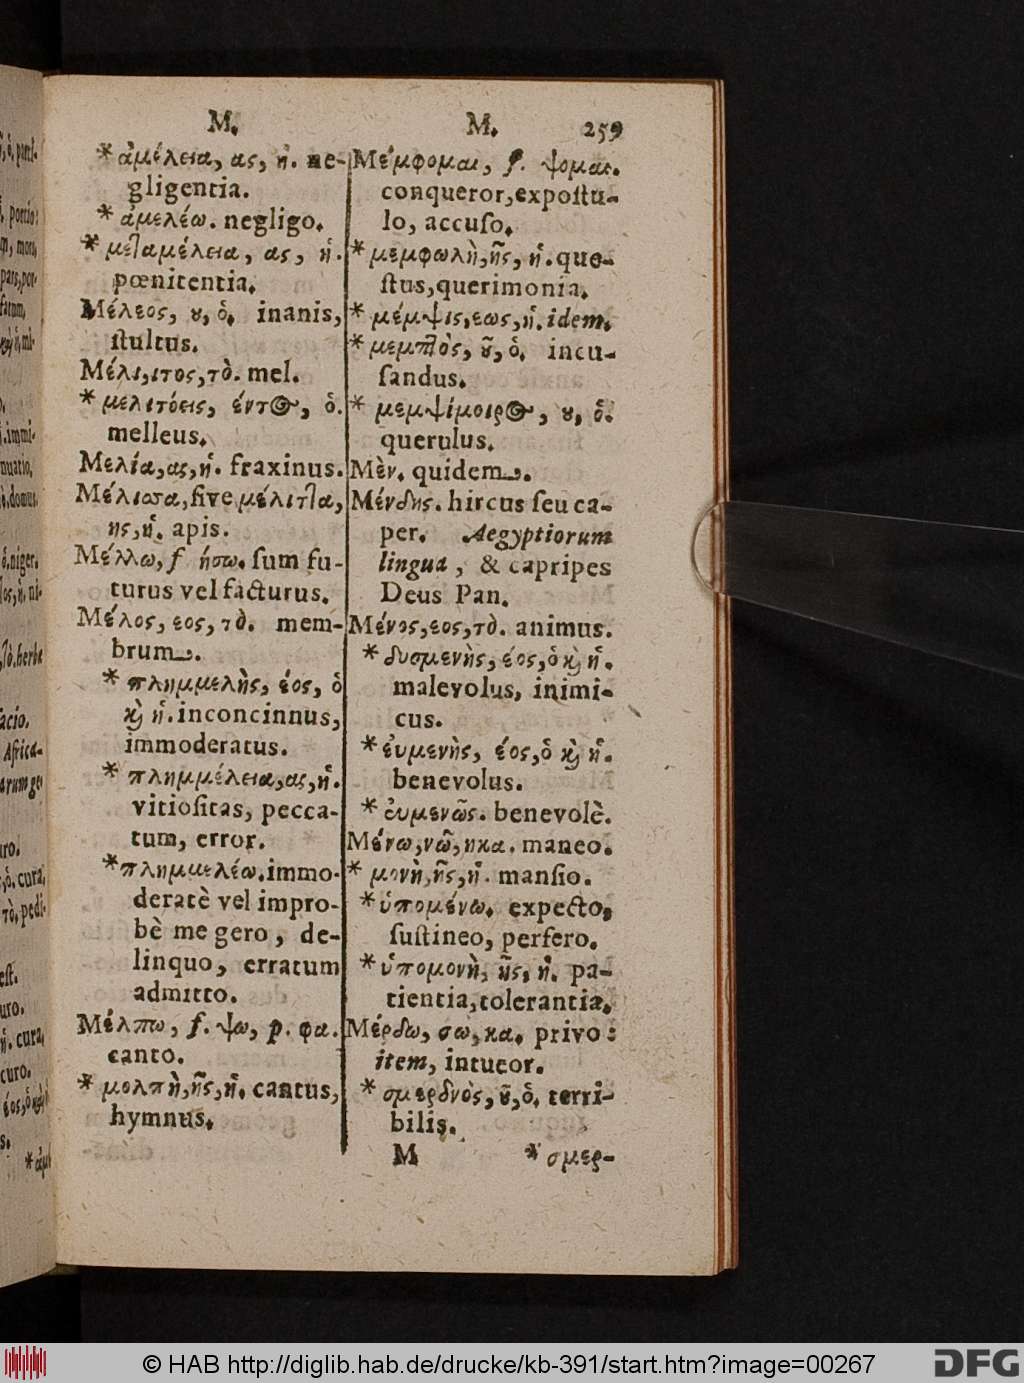 M.
* ἀμέλεια, ας, ἡ. ne-
gligentia.
* ἀμελέω. negligo.
* μεταμέλεια, ας, ἡ.
pœnitentia.
Μέλεος, ȣ, ὁ. inanis,
ſtultus.
Μέλι, ιτος, τὸ. mel.
* μελιτόεις, έντ⊙, ὁ.
melleus.
Μελία, ας, ἡ. fraxinus.
Μέλισσα, ſive μέλιττα,
ης, ἡ. apis.
Μέλλω, f ήσω. ſum fu-
turus vel facturus.
Μέλος, εος, τὸ. mem-
brum.
* πλημμελὴς, έος, ὁ
ϗ ἡ. inconcinnus,
immoderatus.
* πλημμέλεια, ας, ἡ.
vitioſitas, pecca-
tum, error.
* πλημμελέω. immo-
deratè vel impro-
bè me gero, de-
linquo, erratum
admitto.
Μέλπω, f. ψω, p. φα.
canto.
* μολπὴ, ῆς, ἡ. cantus,
hymnus.
M. 259
Μέμφομαι, f. ψομαι.
conqueror, expoſtu-
lo, accuſo.
* μεμφωλὴ, ῆς, ἡ. que-
ſtus, querimonia.
* μέμψις, εως, ἡ. idem.
* μεμπτὸς, ȣ͂, ὁ. incu-
ſandus.
* μεμψίμοιρ⊙, ȣ, ὁ.
querulus.
Μὲν. quidem.
Μένδης. hircus ſeu ca-
per. Aegyptiorum
lingua, & capripes
Deus Pan.
Μένος, εος, τὸ. animus.
* δυσμενὴς, έος, ὁ ϗ ἡ.
malevolus, inimi-
cus.
* ἐυμενὴς, έος, ὁ ϗ ἡ.
benevolus.
* ἐυμενῶς. benevolè.
Μένω, νῶ, ηκα. maneo.
* μονὴ, ῆς, ἡ. manſio.
* ὑπομένω. expecto,
ſuſtineo, perfero.
* ὑπομονὴ, ῆς, ἡ. pa-
tientia, tolerantia.
Μέρδω, σω, κα. privo:
item, intueor.
* σμερδνὸς, ȣ͂, ὁ. terri-
bilis.
M * σμερ-
© HAB http://diglib.hab.de/drucke/kb-391/start.htm?image=00267
DFG